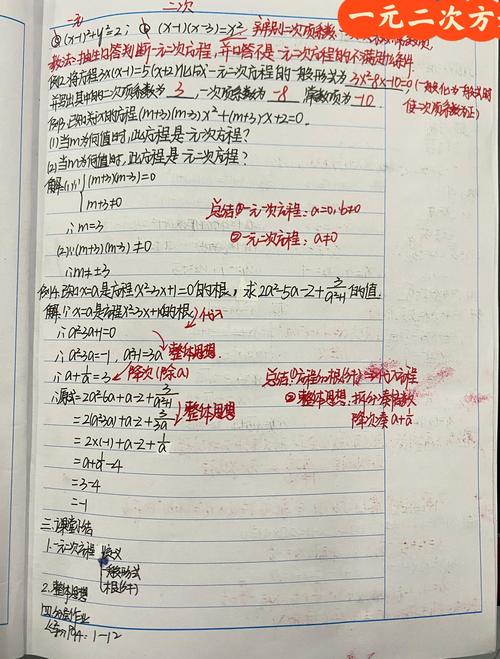 一元二次方
一元 二次
③(x-1)²+y²=2; ④(x-1)(x-3)=x² 辨别二次项系数
教法:抽生口答判断一元二次方程,并口答不是一元二次方程的不满足的条件.
例2.将方程3x(x-1)=5(x+2)化成一元二次方程的一般形式为 3x²-8x-10=0 (一般化为一般式时
并写出其中的二次项系数为 3 ,一次项系数为 -8 常数项为 -10 . 使二次项系数为正)
例3.已知关于x的方程(m+3)(m-3)x²+(m+3)x+2=0.
(1)当m为何值时,此方程是一元一次方程?
(2)当m为何值时,此方程是一元二次方程?
解:(1)∵(m+3)(m-3)=0
m+3≠0
∴m=3
总结①一元一次方程:a=0,b≠0
(2)∵(m+3)(m-3)≠0
②一元二次方程:a≠0
∴m≠±3
例4.已知x=a是方程x²-3x+1=0的根,求2a²-5a-2+3/(a²+1)的值.
解:∵x=a是方程x²-3x+1的根 代入
∴a²-3a+1=0
∴a²-3a=-1, a²+1=3a 整体思想
∴a+1/a=3 降次(除a)
总结:①方程
代入方程
∴原式=2a²-6a+a-2+3/(a²+1)
②整体思想,拆分凑系数
=2(a²-3a)+a-2+3/(3a) 整体思想
降次凑a+1/a
=2×(-1)+a-2+1/a
=a+1/a-4
=3-4
=-1
三.课堂小结
1.一元二次方程 定义
一般形式
根(解)
2.整体思想
四.分层作业
1-12